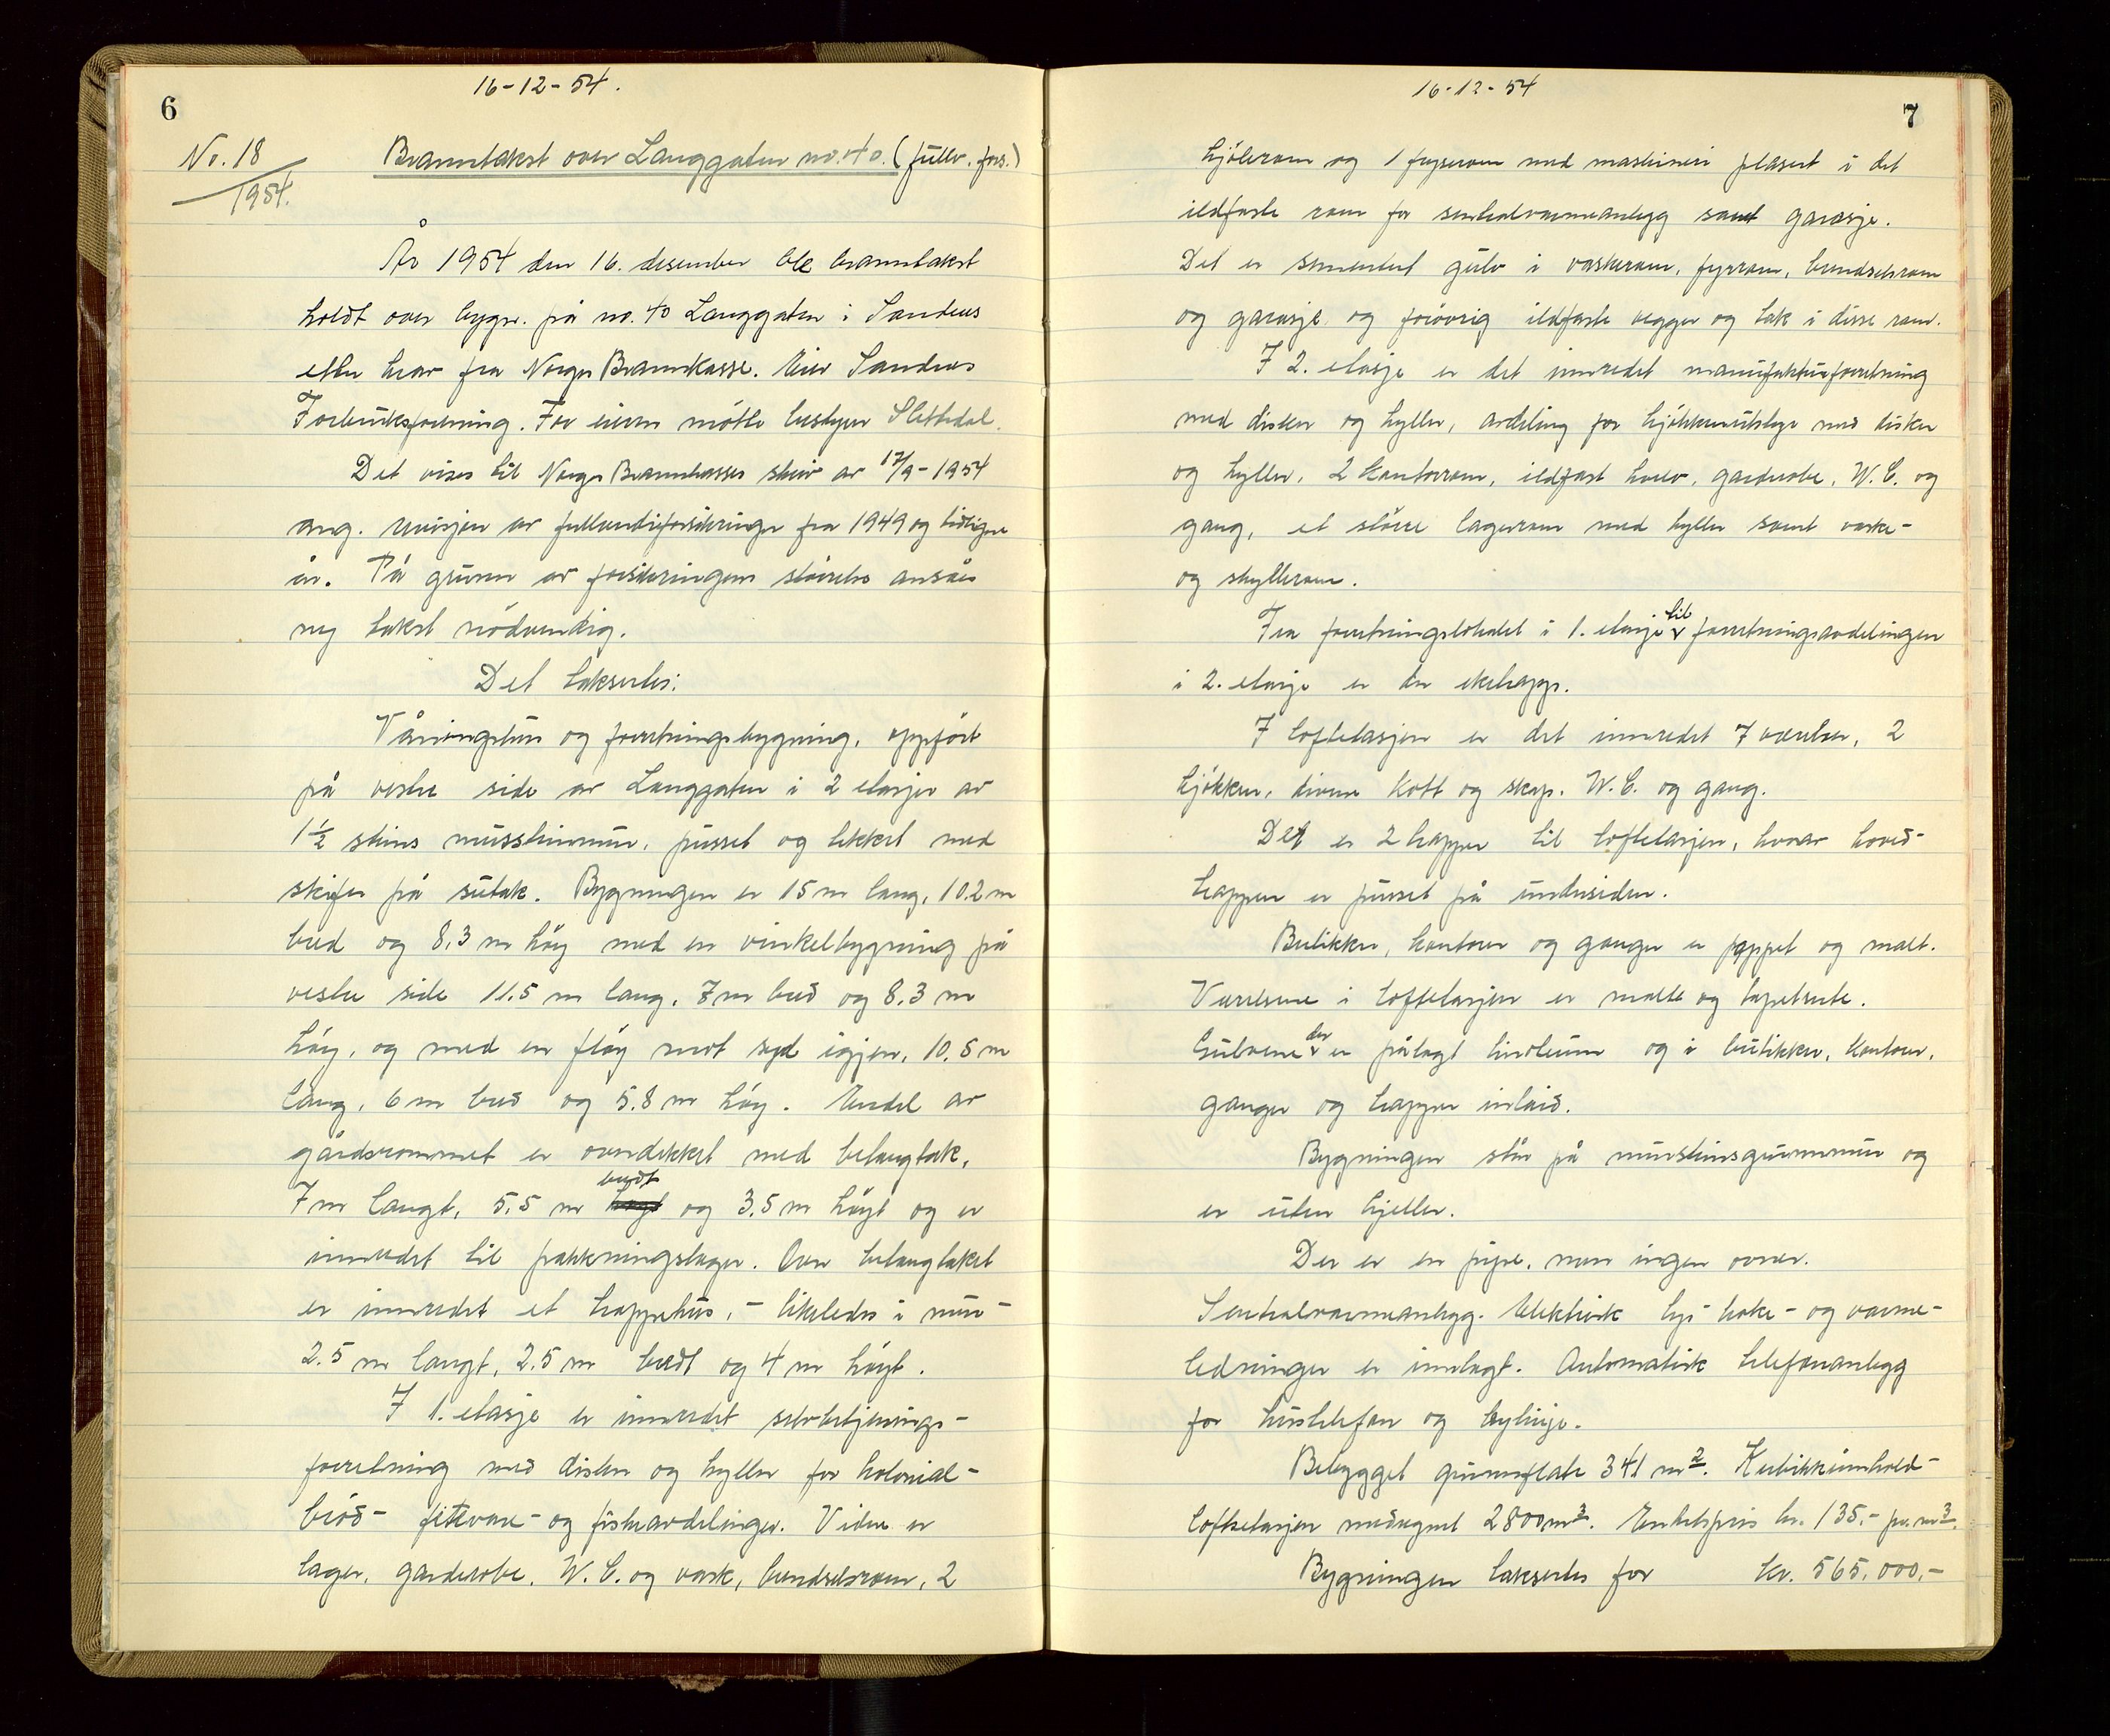 16-12-54.
6
No. 18
1954.
Branntakst over Langgaten no. 40. (fullv. fors.)
År 1954 den 16. desember ble branntakst
holdt over bygn. på no. 40 Langgaten i Sandnes
etter krav fra Norges Brannkasse. Eier Sandnes
Forbruksforening. For eieren møtte bestyrer Slettedal.
Det vises til Norges Brannkasses skriv av 17/9-1954
ang. revisjon av fullverdiforsikringer fra 1949 og tidligere
år. På grunn av forsikringens størrelse ansåes
ny takst nödvendig.
Det takseertes:
Våningshus og forretningsbygning, oppfört
på vestre side av Langgaten i 2 etasjer av
1½ steins mursteinsmur, pusset og tekket med
skifer på sutak. Bygningen er 15 m lang, 10.2 m
bred og 8,3 m höy med en vinkelbygning på
vestre side 11.5 m lang, 7 m bred og 8.3 m
höy, og med en flöy mot syd igjen, 10.5 m
lang, 6 m bred og 5.8 m höy. Endel av
gårdsrommet er overdekket med betongtak,
7 m langt, 5,5 m bredt og 3,5 m höyt og er
innredet til pakkningslager. Over betongtaket
er innredet et trappehus, - likeledes i mur -
2.5 m langt, 2.5 m bredt og 4 m höyt.
I 1. etasje er innredet selvbetjenings-
forretning med disker og hyller for kolonial-
bröd- fetevare- og fiskeavdelinger. Videre er
lager, garderobe, W.C. og vask, brendselsrom, 2
16-12-54
7
kjölerom og 1 fryserom med maskineri plasert i det
ildfaste rom for sentralvarmeanlegg samt garasje.
Det er sementert gulv i vaskerom, fyrrom, brendselsrom
og garasje og foiövrig ildfaste vegger og tak i disse rom.
I 2. etasje er det innredet manufakturforretning
med disker og hyller, avdeling for kjökkenutstyr med disker
og hyller, 2 kontorrom, ildfast hvelv, garderobe, W.C. og
gang, et större lagerrom med hyller samt vaske-
og skyllerom.
Fra forretningslokalet i 1. etasje til forretningsavdelingen
i 2. etasje er der eketrapp.
I loftetasjen er det innredet 7 værelser, 2
kjökken, diverse kott og skap. W.C. og gang.
Det er 2 trapper til loftetasjen, hvorav hoved-
trappen er pusset på undersiden.
Butikker, kontorer og ganger er pappet og malt.
Værelsene i loftetasjen er malte og tapetserte.
Gulvene der er pålagt linoleum og i butikker, kontorer,
ganger og trapper inlaid.
Bygningen står på mursteinsgrunnmur og
er uten kjeller.
Der er en pipe, men ingen ovner.
Sentralvarmeanlegg. Elektrisk lys- koke- og varme-
ledninger er innlagt. Automatisk telefonanlegg
for hustelefon og bylinje.
Bebygget grunnflate 341 m². Kubikkinnhold-
loftsetasjen medregnet 2800 m³. Enhetspris kr. 135.- pr. m³.
Bygningen takseertes for kr. 565.000,-